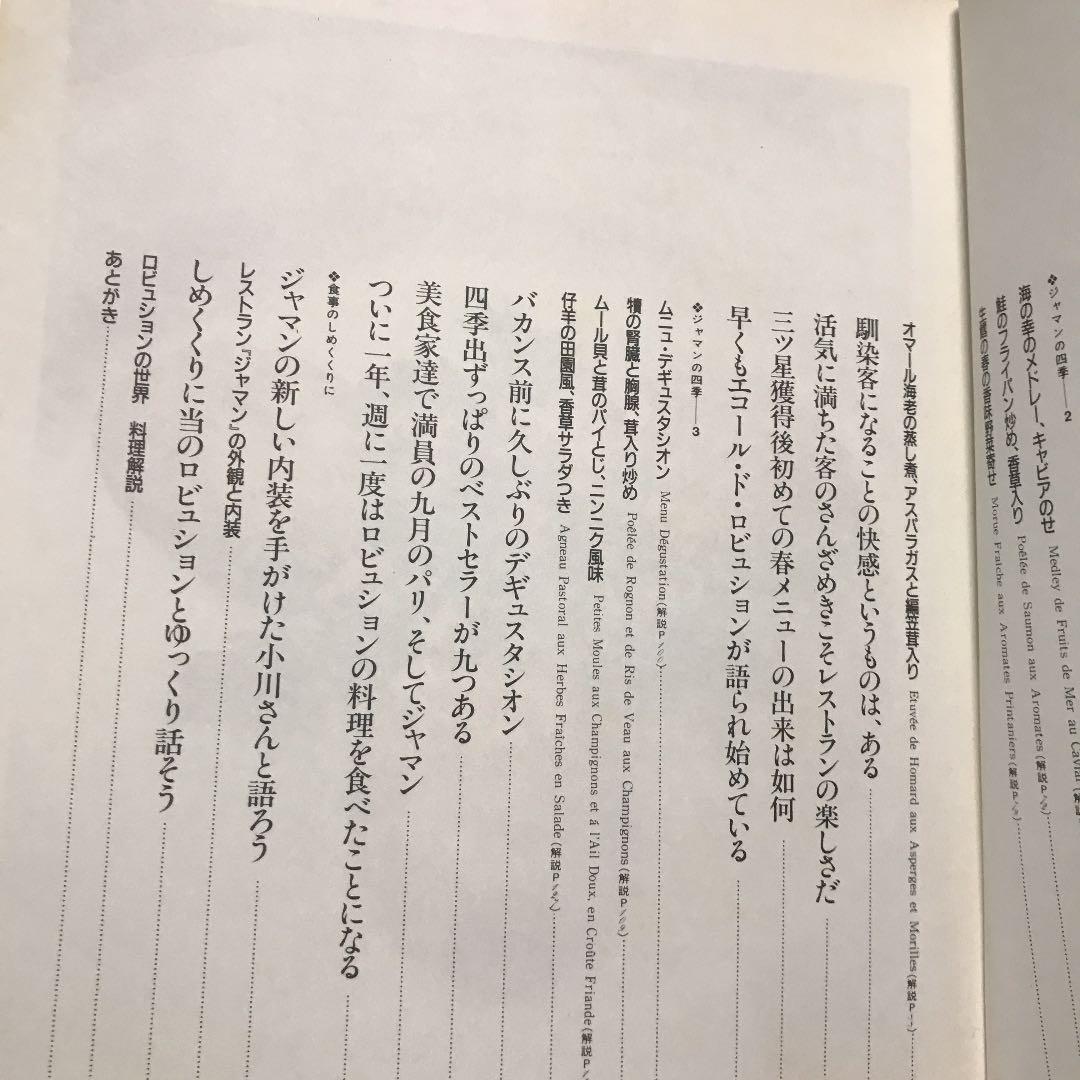 ❖ジャマンの四季──2
海の幸のメドレー、キャビアのせ Medley de Fruits de Mer au Caviar(解説
鮭のフライパン炒め、香草入り Poêlée de Saumon aux Aromates(解説P
の春の香味野菜寄せ Morue Fraîche aux Aromates Printaniers(解説P
オマール海老の蒸し煮、アスパラガスと編笠茸入り Etuvée de Homard aux Asperges et Morilles(解説P
馴染客になることの快感というものは、ある
活気に満ちた客のさんざめきこそレストランの楽しさだ
三ツ星獲得後初めての春メニューの出来は如何
早くもエコール・ド・ロビュションが語られ始めている
❖ジャマンの四季──3
ムニュ・デギュスタシオン Menu Dégustation(解説P
犢の腎臓と胸腺、茸入り炒め Poêlée de Rognon et de Ris de Veau aux Champignons(解説P
ムール貝と茸のパイとじ、ニンニク風味 Petites Moules aux Champignons et á l'Ail Doux, en Croûte Friande(解説P
仔羊の田園風、香草サラダつき Agneau Pastoral aux Herbes Fraîches en Salade(解説P
バカンス前に久しぶりのデギュスタシオン
四季出ずっぱりのベストセラーが九つある
美食家達で満員の九月のパリ、そしてジャマン
ついに一年、週に一度はロビュションの料理を食べたことになる
❖食事のしめくくりに
ジャマンの新しい内装を手がけた小川さんと語ろう
レストラン『ジャマン』の外観と内装
しめくくりに当のロビュションとゆっくり話そう
ロビュションの世界 料理解説
あとがき